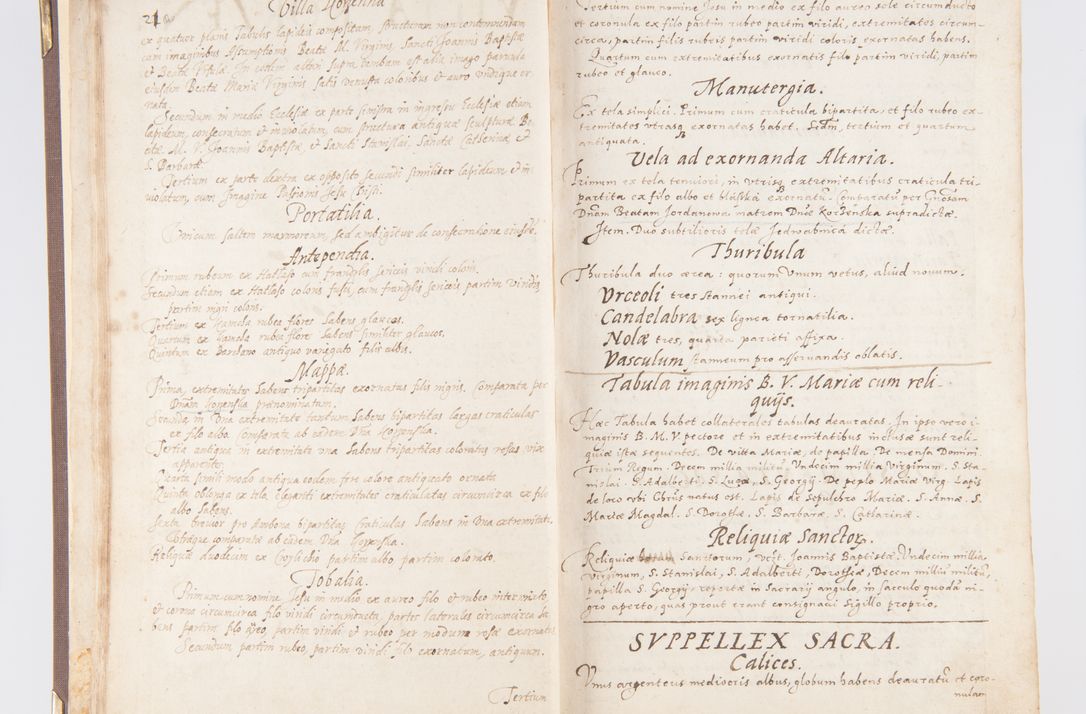 218
Villa Korzenna
ex quatuor planis Tabulis lapideis compositam, structuram non contemnendam
cum imaginibus Assumptionis Beatæ M. Virginis, Sancti Joannis Baptistæ
et Beatæ In eodem altari supra mensam est alia imago parvula
eiusdem Beatæ Mariæ Virginis satis venusta coloribus et auro undique or-
nata.
Secundum in medio Ecclesiæ ex parte sinistra in ingressu Ecclesiæ etiam
lapideum, consecratum et inviolatum, cum structura antiquæ sculpturæ Be-
atæ M. V. Joannis Baptistæ, et Sancti Stanislai, Sanctæ Catherinæ et
S. Barbaræ.
Tertium ex parte dextra ex opposito secundi similiter lapideum et in-
violatum, cum Imagine Passionis Jesu Christi.
Portatilia.
Unicum saltem marmoreum, sed ambigitur de consecratione eiusdē.
Antependia.
Primum rubeum ex Hatlaso cum frangiis sericeis viridi coloris.
Secundum etiam ex Hatlaso coloris fusci, cum frangiis sericeis partim viridis
partim nigri coloris.
Tertium ex Hamcha rubea flores habens glaucos.
Quartum ex Hamcha rubea flore habens similiter glaucos.
Quintum ex antiquo variegato filis albis.
Mappæ.
Prima, extremitates habens tripartitas exornatas filis nigris. Comparata per
Dnam Korzenska prænominatam.
Secunda, in una extremitate tantum habens bipartitas largas craticulas
ex filo albo. Comparata ab eadem Dna Korzenska.
Tertia antiqua in extremitate una habens tripartitas coloratas rosas vix
apparenter.
Quarta simili modo antiqua eodem fere colore antiquato ornata.
Quinta oblonga ex tela eleganti extremitates craticulatas circumcirca ex filo
albo habens.
Sexta brevior pro Ambona bipartitas craticulas habens in una extremitate,
Utraque comparatæ ab eadem Dna Korzenska.
Reliquæ duodecim ex partim albo partim colorato.
Tobalia.
Primum cum nomine Jesu in medio ex aureo filo et rubeo intertexto
et corona circumcirca filo viridi circumducta, partes laterales circumcirca ha-
bens partim filo aureo, partim viridi et rubeo per modum rosæ exornatas
Secundum partim rubeo, partim viridi filo exornatum, antiquum.
Tertium
Tertium cum nomine Jesu in medio ex filo aureo sole circumducto
et coronula ex filo partim rubeo partim viridi, extremitates circum-
circa, partim filis rubeis partim viridi coloris exornatas habens.
Quartum cum extremitatibus exornatis filo partim viridi, partim
rubeo et glauco.
Manutergia.
Ex tela simplici. Primum cum craticula bipartita, et filo rubeo ex-
tremitates utrasq exornatas habet. Scdm, tertium et quartum
antiquata.
Vela ad exornanda Altaria.
Primum ex tela tenuiori, in utrisq extremitatibus craticula tri-
partita ex filo albo et blaska exornatū. Comparatū per Gnosam
Dnam Beatam Jordanowa matrem Dnæ Korzenska supradictæ.
Item. Duo subtilioris telæ Jedwabnica dictæ.
Thuribula
Thuribula duo ærea: quorum Unum vetus, aliud novum.
Vrceoli tres stannei antiqui.
Candelabra sex lignea tornatilia.
Nolæ tres, quarta parieti affixa.
Vasculum stanneum pro asservandis oblatis.
Tabula imaginis B. V. Mariæ cum reli-
quijs.
Hæc Tabula habet collaterales tabulas deauratas. In ipso vero i-
maginis B. M. V. pectore et in extremitatibus inclusæ sunt reli-
quiæ istæ sequentes. De vitta Mariæ, de papilla. De mensa Domini.
Trium Regum. Decem millia militū. Undecim millia virginum. S. Sta-
nislai. S. Adalberti. S. Lucæ, S. Georgij. De peplo Mariæ Virg. Lapis
de loco vbi Chrūs natus est. Lapis de sepulchro Mariæ. S. Annæ. S.
Mariæ Magdal. S. Dorotheæ. S. Barbaræ. S. Catharinæ.
Reliquiæ Sanctor.
Reliquiæ Sanctorum, vczt. Joannis Baptistæ. Undecim millia
virginum, S. Stanislai, S. Adalberti, Dorotheæ, Decem milliū militū,
papilla S. Georgij repertæ in Sacrarij angulo, in sacculo quodā ni-
gro aperto, quas prout erant consignavi Sigillo proprio.
SVPPELLEX SACRA.
Calices.
Unus argenteus mediocris albus, globum habens deauratū et coro-
nulam